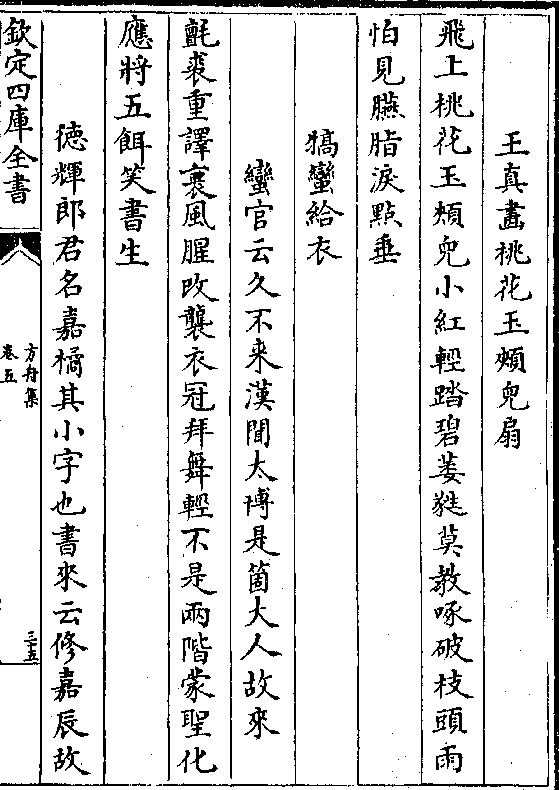 王真畫桃花玉頰兒扇
飛上桃花玉頰兒小紅輕踏碧萎蕤莫教啄破枝頭雨
怕見臙脂淚點垂
犒蠻給衣
蠻官云久不来漢間太博是箇大人故来
氈裘重譯裹風腥改襲衣冠拜舞輕不是兩階蒙聖化
應將五餌笑書生
徳輝郎君名嘉橘其小字也書来云修嘉辰故
欽定四庫全書
方舟集
卷五
三十五